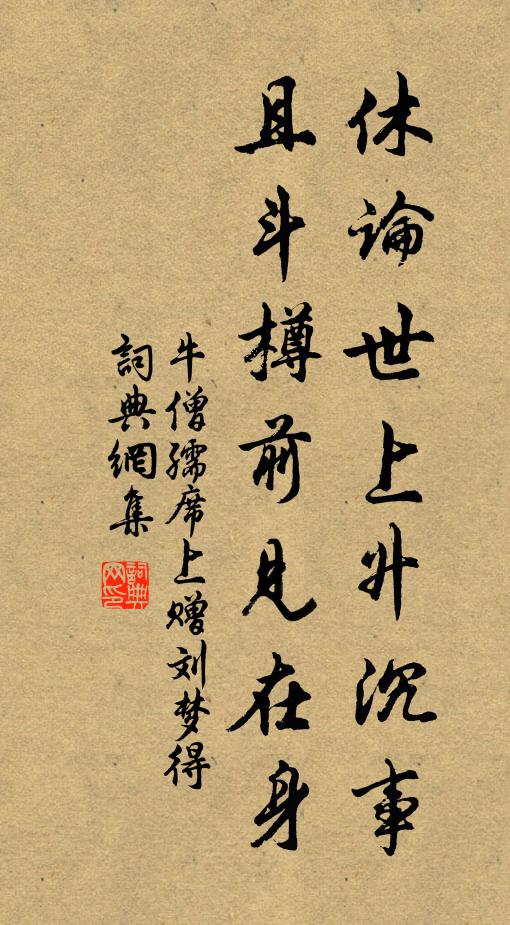 休論世上升沉事
且斗樽前見在身
牛僧孺席上赠刘梦得
詞典網集
詞典网印